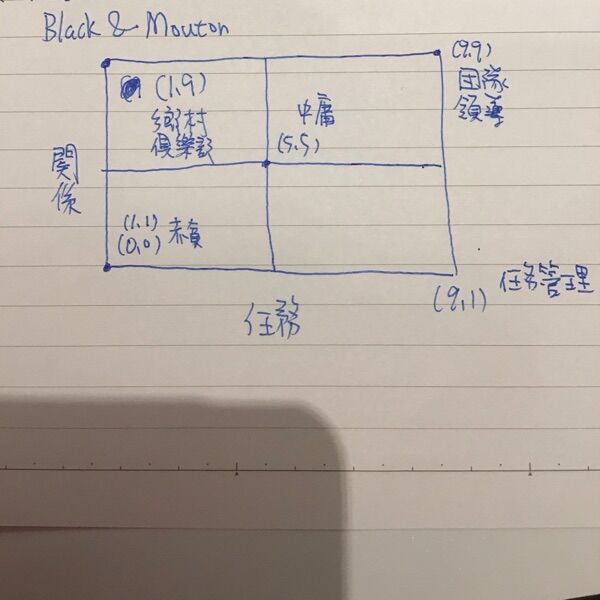 Black & Mouton
(1,9)
鄉村
俱樂部
中庸
(5,5)
(9,9)
团隊
領導
関
係
(1,1)
(0,0) 赤貧
任務
(9,1) 任務管理